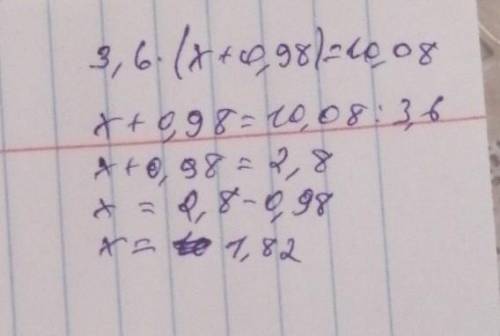 3,6·(x+0,98)=10,08
x+0,98=10,08:3,6
x+0,98=2,8
x=2,8-0,98
x=1,82